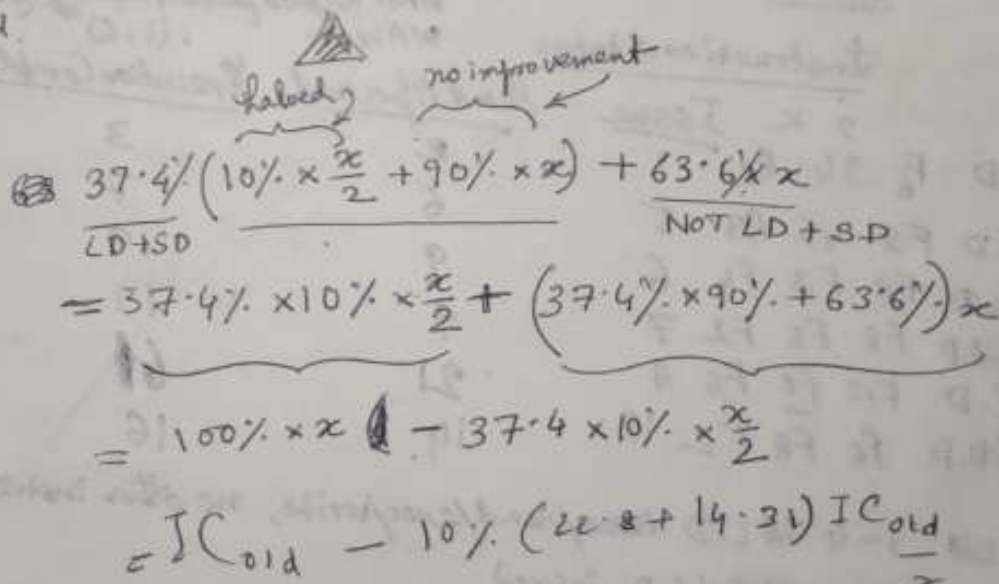 halved no improvement
37.4% (10% × x/2 + 90% × x) + 63.6% x x
LD+SD NOT LD + SD
= 37.4% × 10% × x/2 + (37.4% × 90% + 63.6%) x
= 100% × x - 37.4 × 10% × x/2
= IC old - 10% ( + 14.31) IC old